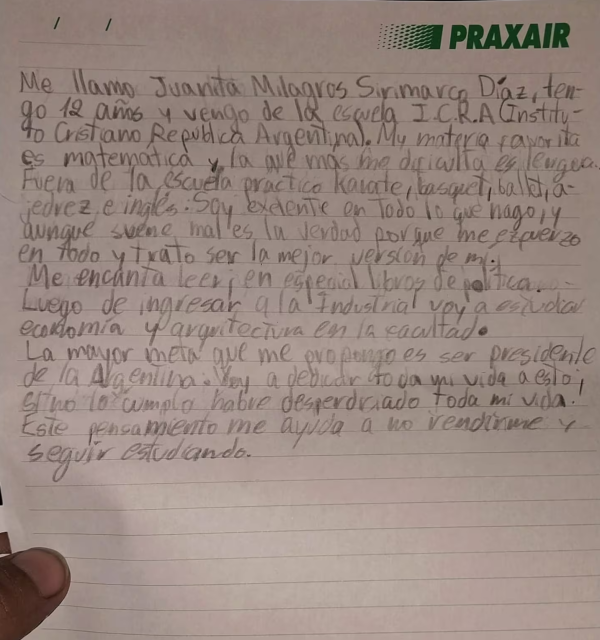 / /
PRAXAIR
Me llamo Juanita Milagros Sirimarco Díaz, ten-
go 12 años y vengo de la escuela I.C.R.A (Institu-
to Cristiano República Argentina). My materia favorita
es matemática y la que más me dificulta es lengua.
Fuera de la escuela practico karate, basquet, ballet, a-
jedrez e inglés. Soy exelente en todo lo que hago, y
aunque suene mal es la verdad porque me esfuerzo
en todo y trato ser la mejor versión de mi.
Me encanta leer, en especial libros de política.
Luego de ingresar a la Industrial voy a estudiar
economía y arquitectura en la facultad.
La mayor meta que me propongo es ser presidente
de la Argentina. Voy a dedicar toda mi vida a esto,
si no lo cumplo habré desperdiciado toda mi vida.
Este pensamiento me ayuda a no rendirme y
seguir estudiando.